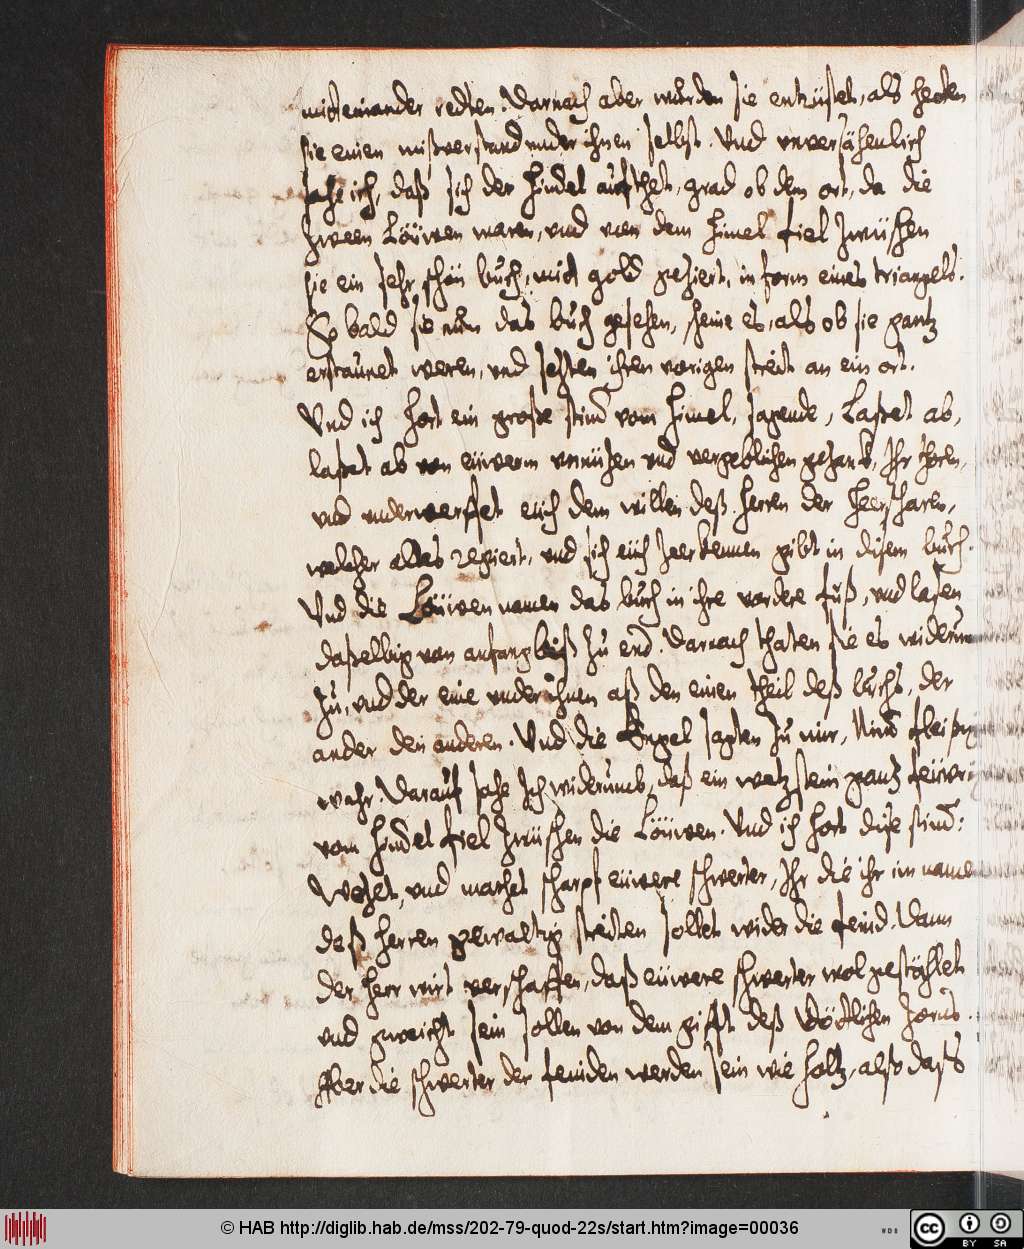 miteinander redten. Darnach aber wurden sie entrüstet, als hetten
sie einen mißverstand under ihnen selbst. Und unversähenlich
sahe ich, daß sich der Himel aufthet, grad ob dem ort, da die
Zween Löüwen waren, und von dem Himel fiel Zwüschen
sie ein sehr schön buch, mit gold geziert, in form eines triangels.
So bald sie nun das buch gesehen, scheine es, als ob sie gantz
erstaunet weren, und setzten ihren vorigen streit an ein ort.
Und ich hort ein große stim̄ vom Himel, sagende, Laßet ab,
laßet ab von eüwerm unnützen und vergeblichen gezank, Ihr thoren,
und underwerffet eüch dem willen deß Herren der Heerscharen,
welcher alles regiert, und sich eüch zerkennen gibt in disem buch.
Und die Löüwen namen das buch in ihre vordere füß, und lasen
daßelbig von anfang biß zu end. Darnach thaten sie es widerum
zu, und der eine under ihnen aß den einen theil deß buchs, der
ander den anderen. Und die Engel sagten zu mir, Nim̄ fleißig
wahr. Darauf sahe Ich widerumb, daß ein wetzstein gantz feüwrig
vom Himel fiel Zwüschen die Löüwen. Und ich hort dise stim̄:
Wetzet, und machet scharpf eüwere schwerter, Ihr die ihr im namen
deß Herren gewaltig streiten sollet wider die feind. Dann
der Herr wirt verschaffen, daß eüwere schwerter wol gestächlet
und gweicht sein sollen von dem gifft deß Göttlichen Zorns.
Aber die schwerter der feinden werden sein wie holtz, also daß
© HAB http://diglib.hab.de/mss/202-79-quod-22s/start.htm?image=00036
WDB
cc BY SA